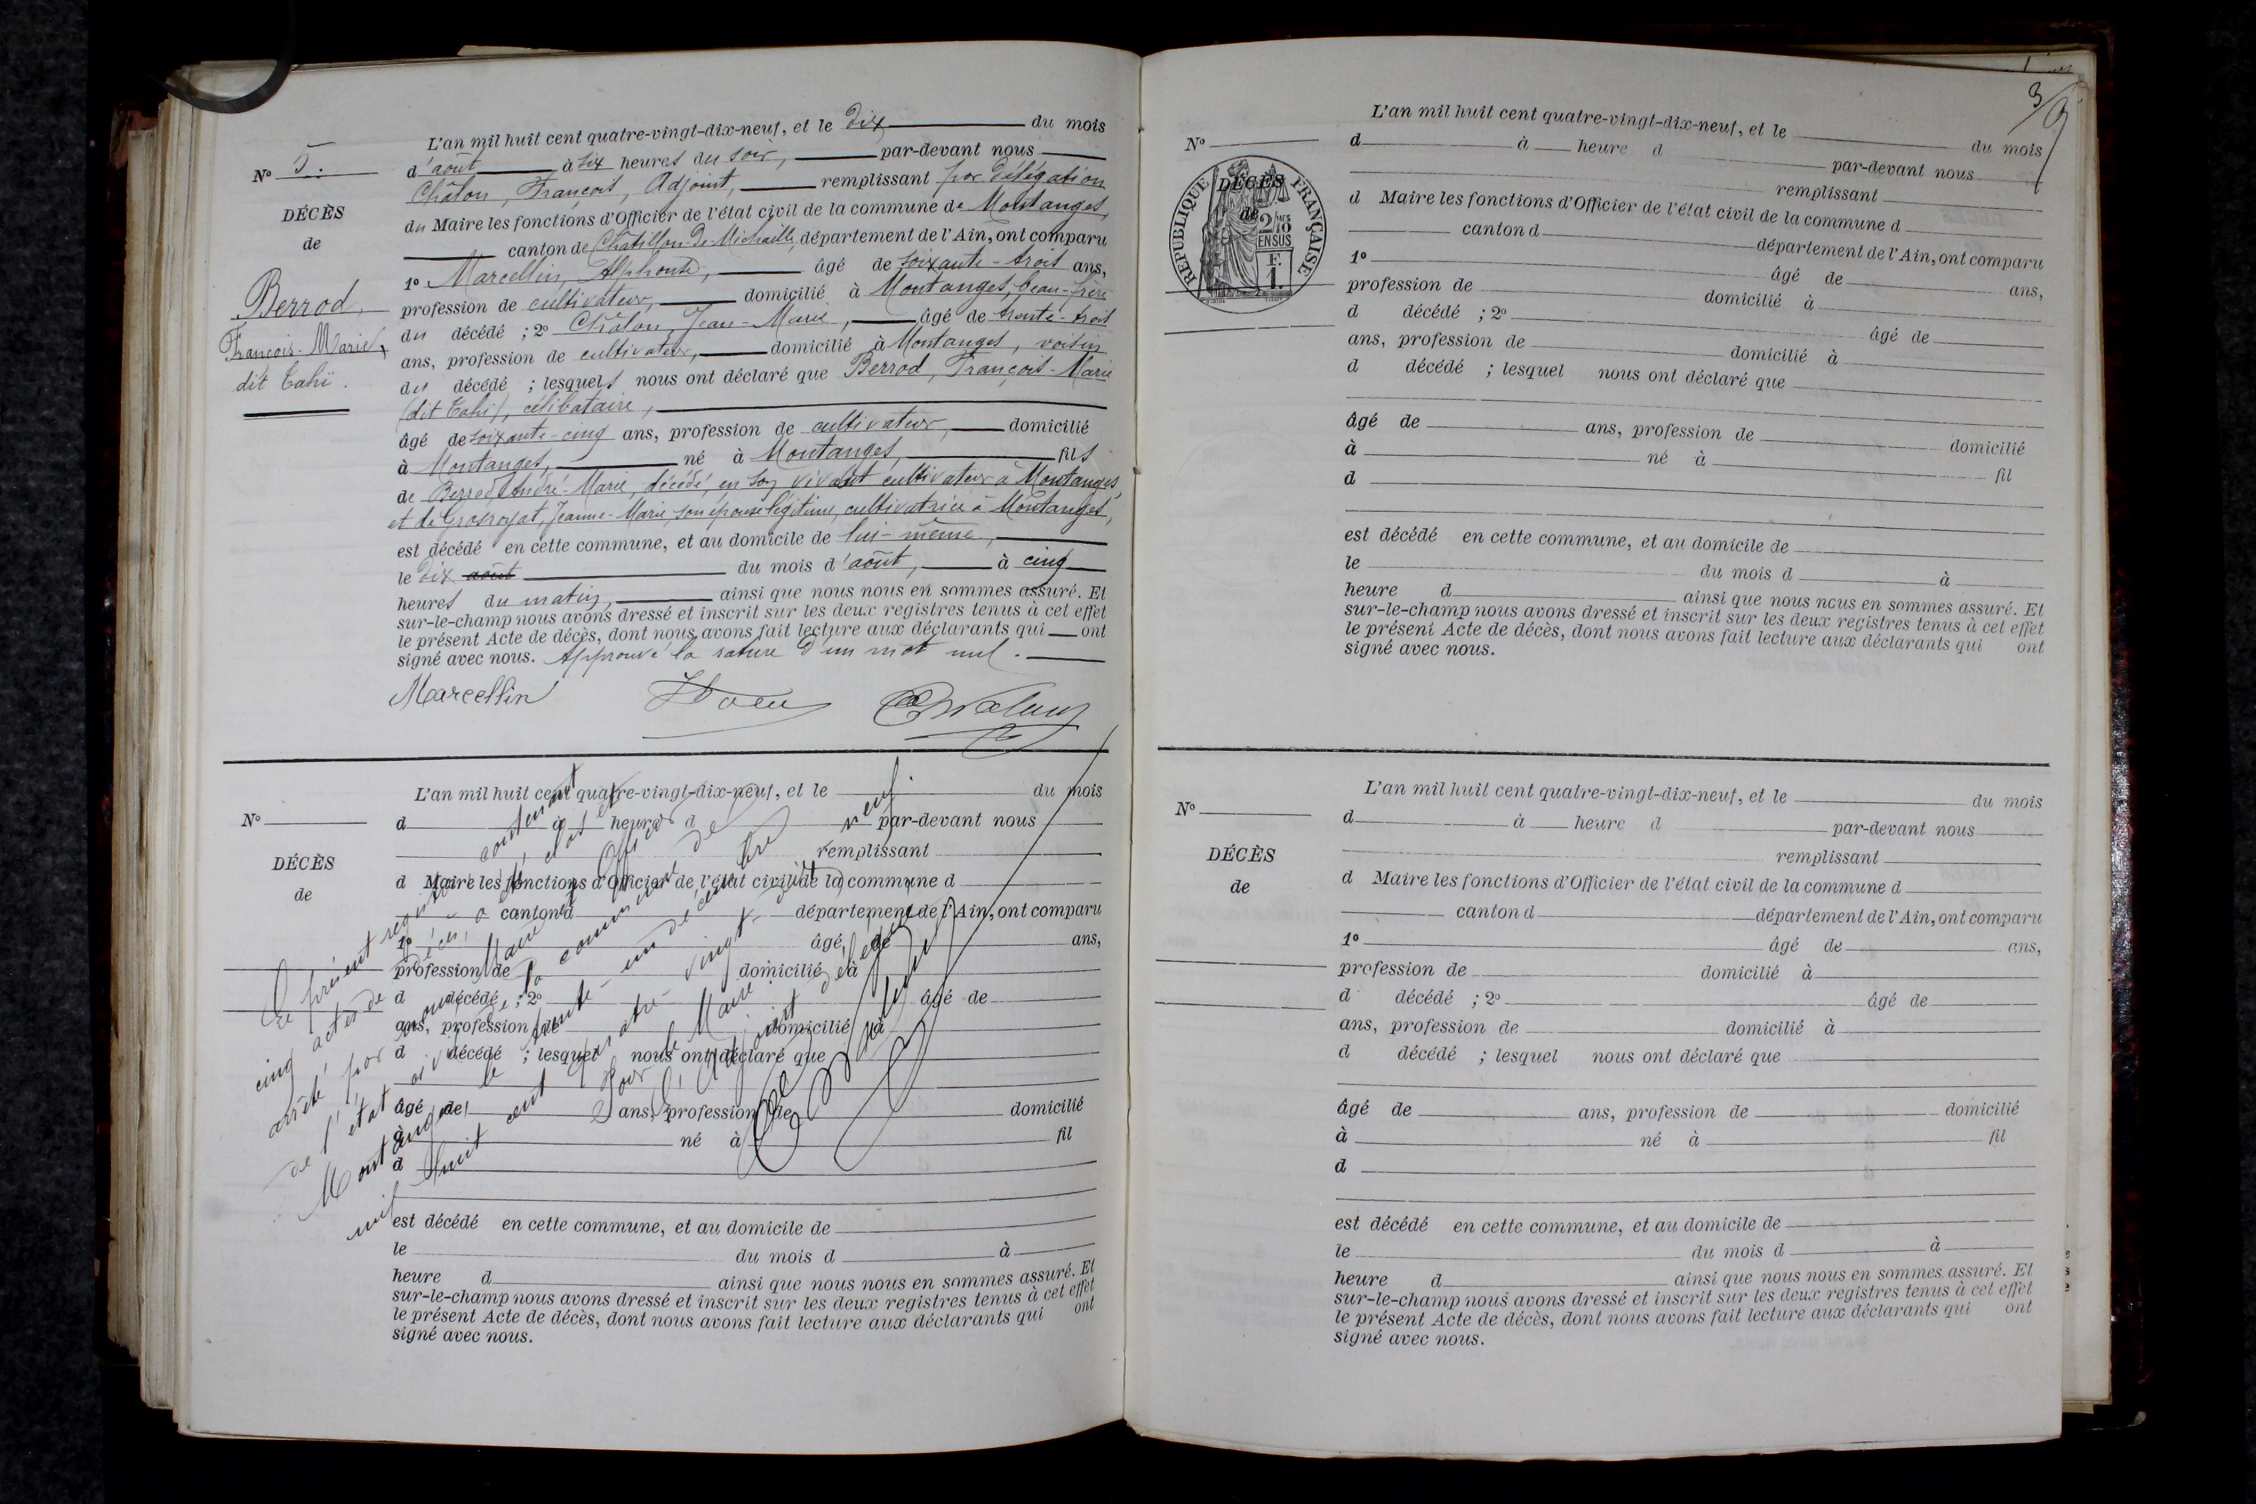 L'an mil huit cent quatre-vingt-dix-neuf, et le dix du mois
d'août à six heures du soir, par-devant nous
Châlon, François, Adjoint, remplissant par délégation
du Maire les fonctions d'Officier de l'état civil de la commune de Montanges,
canton de Châtillon-de-Michaille, département de l'Ain, ont comparu
1º Marcellin, Alphonse, âgé de soixante-trois ans,
profession de cultivateur, domicilié à Montanges, beau-frère
du décédé ; 2º Châlon, Jean-Marie, âgé de trente-trois
ans, profession de cultivateur, domicilié à Montanges, voisin
du décédé ; lesquels nous ont déclaré que Berrod, François-Marie
(dit Tahi), célibataire,
âgé de soixante-cinq ans, profession de cultivateur, domicilié
à Montanges, né à Montanges, fils
de Berrod André-Marie, décédé, en son vivant cultivateur à Montanges,
et de Grosroyat, Jeanne-Marie, son épouse légitime, cultivatrice à Montanges,
est décédé en cette commune, et au domicile de lui-même,
le dix août du mois d'août, à cinq
heures du matin, ainsi que nous nous en sommes assuré. Et
sur-le-champ nous avons dressé et inscrit sur les deux registres tenus à cet effet
le présent Acte de décès, dont nous avons fait lecture aux déclarants qui ont
signé avec nous. Approuvé la rature d'un mot nul.
Marcellin
Nº 5.
DÉCÈS
de
Berrod,
François-Marie,
dit Tahi.
L'an mil huit cent quatre-vingt-dix-neuf, et le du mois
d à heure d par-devant nous
remplissant
d Maire les fonctions d'Officier de l'état civil de la commune d
canton d département de l'Ain, ont comparu
1º âgé de ans,
profession de domicilié à
d décédé ; 2º âgé de
ans, profession de domicilié à
d décédé ; lesquel nous ont déclaré que
âgé de ans, profession de domicilié
à né à fil
d
est décédé en cette commune, et au domicile de
le du mois d à
heure d ainsi que nous nous en sommes assuré. Et
sur-le-champ nous avons dressé et inscrit sur les deux registres tenus à cet effet
le présent Acte de décès, dont nous avons fait lecture aux déclarants qui ont
signé avec nous.
Nº
DÉCÈS
de
Le présent registre contenant
cinq actes de décès, a été clos et
arrêté par nous Maire Officier
de l'état civil de la commune de
Montanges, le trente-un décembre
mil huit cent quatre-vingt-dix-neuf
Pour le Maire :
l'Adjoint délégué
3
L'an mil huit cent quatre-vingt-dix-neuf, et le du mois
d à heure d par-devant nous
remplissant
d Maire les fonctions d'Officier de l'état civil de la commune d
canton d département de l'Ain, ont comparu
1º âgé de ans,
profession de domicilié à
d décédé ; 2º âgé de
ans, profession de domicilié à
d décédé ; lesquel nous ont déclaré que
âgé de ans, profession de domicilié
à né à fil
d
est décédé en cette commune, et au domicile de
le du mois d à
heure d ainsi que nous nous en sommes assuré. Et
sur-le-champ nous avons dressé et inscrit sur les deux registres tenus à cet effet
le présent Acte de décès, dont nous avons fait lecture aux déclarants qui ont
signé avec nous.
Nº
DÉCÈS
de
RÉPUBLIQUE FRANÇAISE
2/10
EN SUS
F.
1.
L'an mil huit cent quatre-vingt-dix-neuf, et le du mois
d à heure d par-devant nous
remplissant
d Maire les fonctions d'Officier de l'état civil de la commune d
canton d département de l'Ain, ont comparu
1º âgé de ans,
profession de domicilié à
d décédé ; 2º âgé de
ans, profession de domicilié à
d décédé ; lesquel nous ont déclaré que
âgé de ans, profession de domicilié
à né à fil
d
est décédé en cette commune, et au domicile de
le du mois d à
heure d ainsi que nous nous en sommes assuré. Et
sur-le-champ nous avons dressé et inscrit sur les deux registres tenus à cet effet
le présent Acte de décès, dont nous avons fait lecture aux déclarants qui ont
signé avec nous.
Nº
DÉCÈS
de